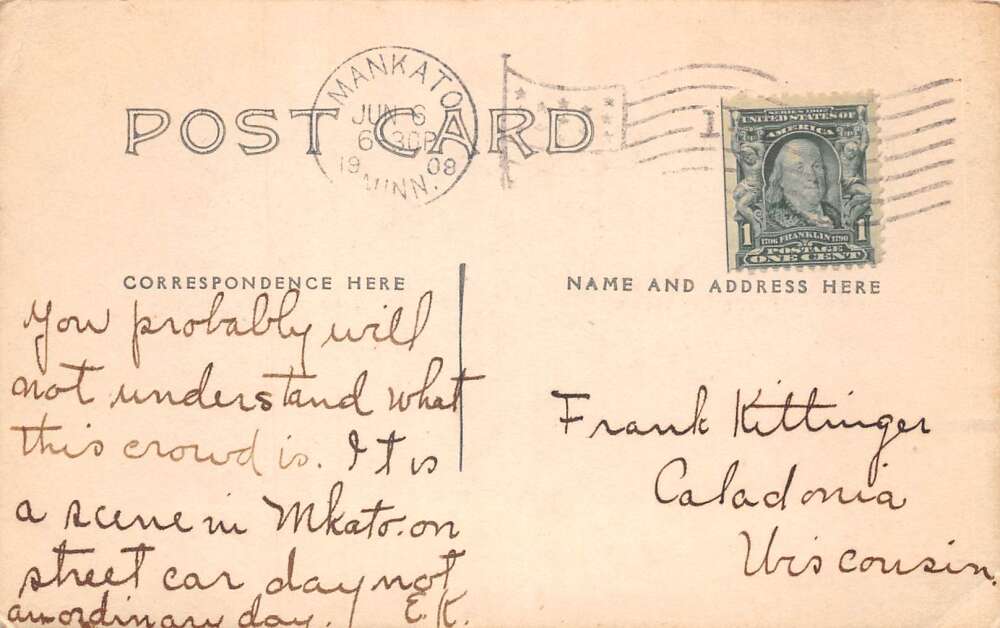 POST CARD
MANKATO
JUN 6
6-30P
1908
MINN.
1
SERIES 1902
UNITED STATES OF
AMERICA
1 1
1706 FRANKLIN 1790
POSTAGE
ONE CENT
CORRESPONDENCE HERE
You probably will
not understand what
this crowd is. It is
a scene in Mkato. on
street car day not
an ordinary day. E.K.
NAME AND ADDRESS HERE
Frank Kittinger
Caladonia
Wisconsin.